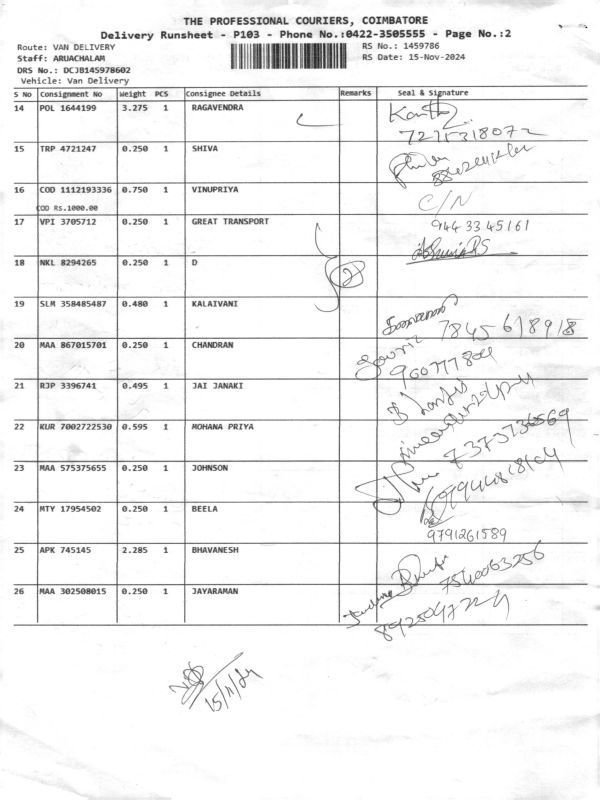 THE PROFESSIONAL COURIERS, COIMBATORE
Delivery Runsheet - P103 - Phone No.:0422-3505555 - Page No.:2
Route: VAN DELIVERY
RS No.: 1459786
Staff: ARUACHALAM
RS Date: 15-Nov-2024
DRS No.: DCJB145978602
Vehicle: Van Delivery
S No Consignment No Weight PCS Consignee Details Remarks Seal & Signature
14 POL 1644199 3.275 1 RAGAVENDRA
15 TRP 4721247 0.250 1 SHIVA
16 COD 1112193336 0.750 1 VINUPRIYA C/N
COD Rs.1000.00
17 VPI 3705712 0.250 1 GREAT TRANSPORT 9443345161
18 NKL 8294265 0.250 1 D 2
19 SLM 358485487 0.480 1 KALAIVANI 7845618918
20 MAA 867015701 0.250 1 CHANDRAN
21 RJP 3396741 0.495 1 JAI JANAKI
22 KUR 7002722530 0.595 1 MOHANA PRIYA
23 MAA 575375655 0.250 1 JOHNSON
24 MTY 17954502 0.250 1 BEELA 9791261589
25 APK 745145 2.285 1 BHAVANESH 7540063256
26 MAA 302508015 0.250 1 JAYARAMAN
15/11/24